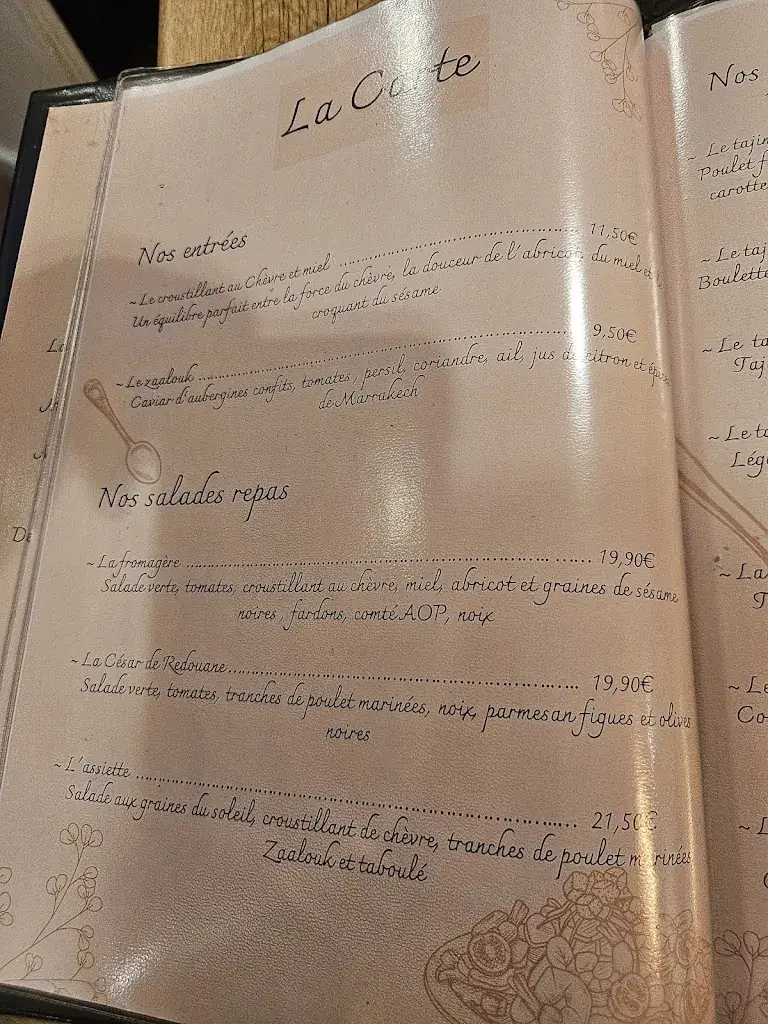 La Carte
Nos entrées
~ Le croustillant au Chèvre et miel ........................................ 11,50€
Un équilibre parfait entre la force du chèvre, la douceur de l'abricot, du miel et
croquant du sésame
~ Le zaalouk ........................................ 9,50€
Caviar d'aubergines confits, tomates, persil, coriandre, ail, jus de citron et
de Marrakech
Nos salades repas
~ La fromagère ........................................ 19,90€
Salade verte, tomates, croustillant au chèvre, miel, abricot et graines de sésame
noires, fardons, comté AOP, noix
~ La César de Redouane ........................................ 19,90€
Salade verte, tomates, tranches de poulet marinées, noix, parmesan figues et olives
noires
~ L'assiette ........................................ 21,50€
Salade aux graines du soleil, croustillant de chèvre, tranches de poulet marinées
Zaalouk et taboulé
Nos
~ Le tajin
Poulet f
carotte
~ Le taj
Boulette
~ Le ta
Taj
~ Le ta
Lég
~ La
T
~ Le
Co
~ L